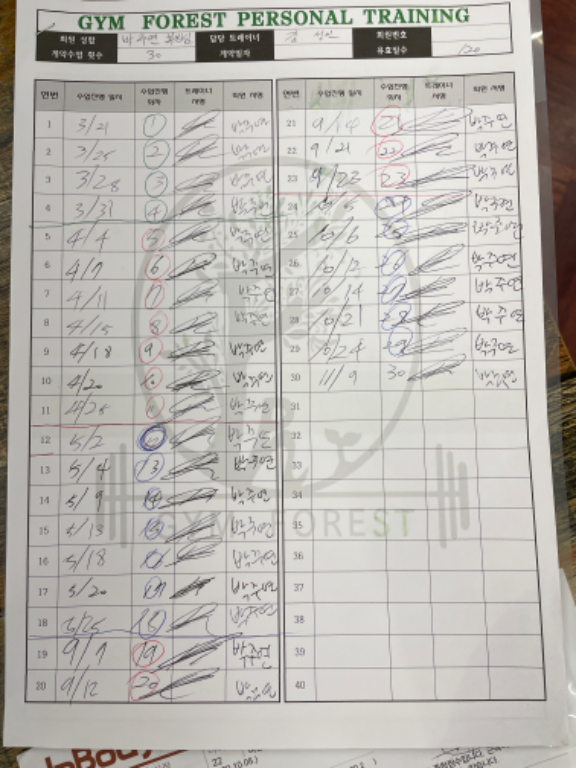 GYM FOREST PERSONAL TRAINING
회원 성함 박주연 회원님 담당 트레이너 회원번호
계약수업 횟수 30 계약일자 유효일수 120
연번 수업진행 일자 수업진행 회차 트레이너 서명 회원 서명
1 3/21 1 박주연
2 3/25 2 박주연
3 3/28 3 박주연
4 3/31 4 박주연
5 4/4 5 박주연
6 4/7 6 박주연
7 4/11 7 박주연
8 4/15 8 박주연
9 4/18 9 박주연
10 4/20 10 박주연
11 4/25 11 박주연
12 5/2 12 박주연
13 5/4 13 박주연
14 5/9 14 박주연
15 5/13 15 박주연
16 5/18 16 박주연
17 5/20 17 박주연
18 5/25 18 박주연
19 9/7 19 박주연
20 9/12 20 박주연
연번 수업진행 일자 수업진행 회차 트레이너 서명 회원 서명
21 9/14 21 박주연
22 9/21 22 박주연
23 9/23 23 박주연
24 10/5 24 박주연
25 10/6 25 박주연
26 10/12 26 박주연
27 10/14 27 박주연
28 10/21 28 박주연
29 10/24 29 박주연
30 11/9 30 박주연
31
32
33
34
35
36
37
38
39
40
GYM FOREST
InBody